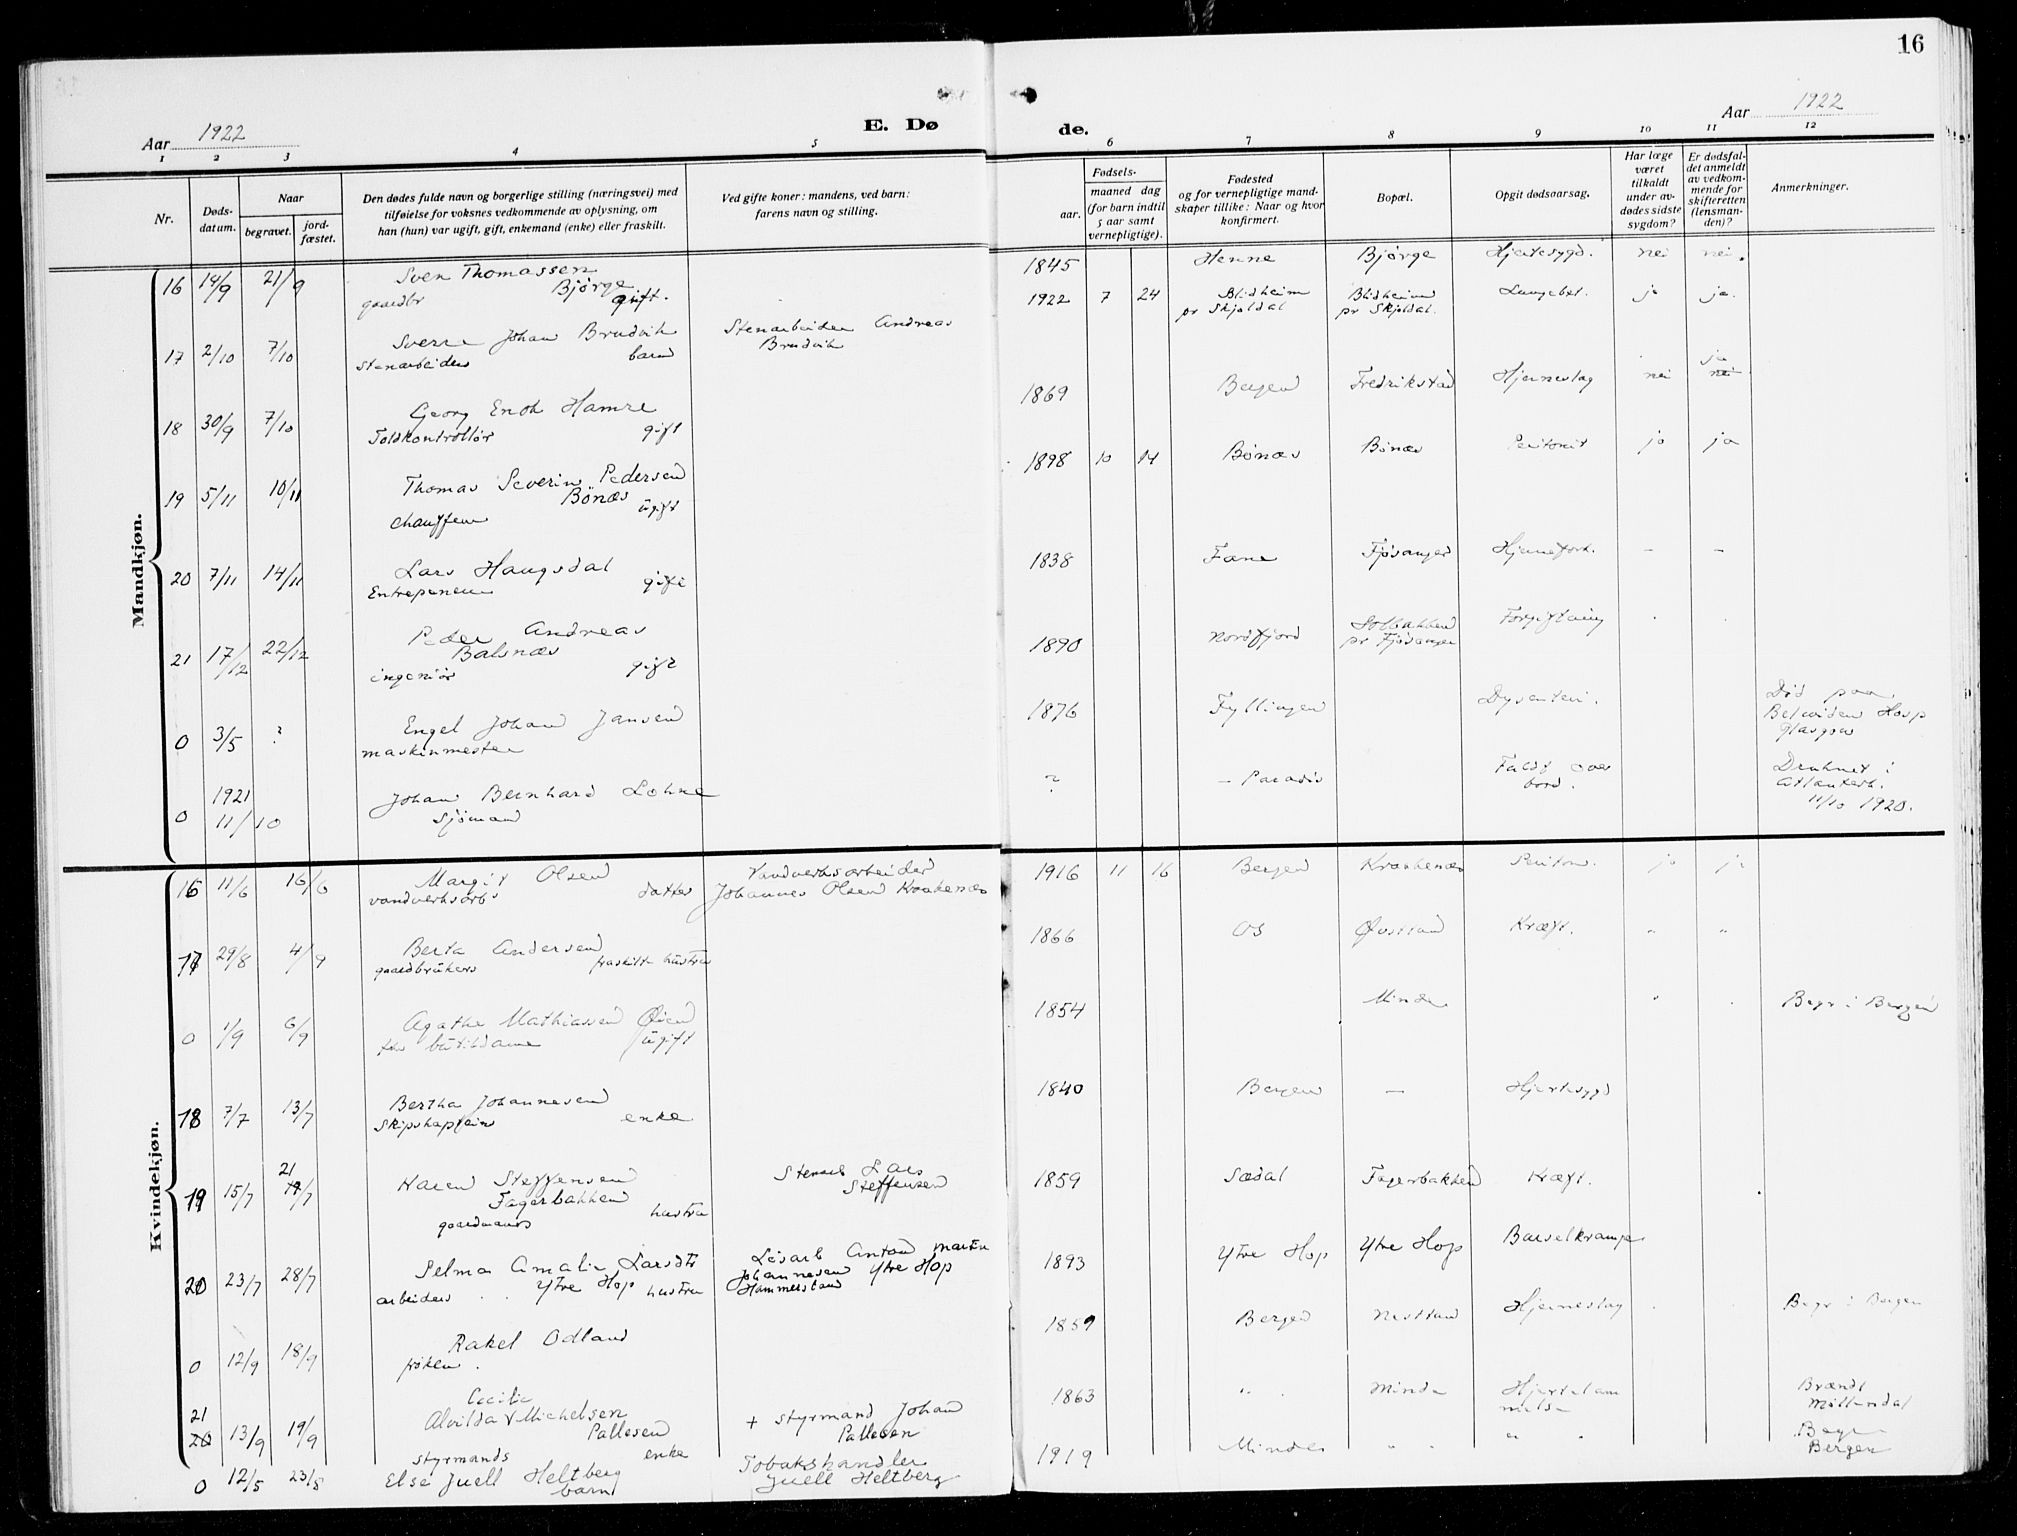 16
Aar 1922
E. Dø
de.
Aar 1922
1 2 3 4 5 6 7 8 9 10 11 12
Nr.
Døds-
datum.
Naar
begravet.
jord-
fæstet.
Den dødes fulde navn og borgerlige stilling (næringsvei) med
tilføielse for voksnes vedkommende av oplysning, om
han (hun) var ugift, gift, enkemand (enke) eller fraskilt.
Ved gifte koner: mandens, ved barn:
farens navn og stilling.
Fødsels-
aar.
maaned dag
(for barn indtil
5 aar samt
vernepligtige).
Fødested
og for vernepligtige mand-
skaper tillike: Naar og hvor
konfirmert.
Bopæl.
Opgit dødsaarsag.
Har læge
været
tilkaldt
under av-
dødes sidste
sygdom?
Er dødsfal-
det anmeldt
av vedkom-
mende for
skifteretten
(lensman-
den)?
Anmerkninger.
Mandkjøn.
16 14/9 21/9 Sven Thomassen
Bjørge
gaardbr gift.
1845 Henne Bjørge Hjertesygd. nei nei.
17 2/10 7/10 Sverre Johan Brudvik
stenarbeiders barn
Stenarbeider Andreas
Brudvik
1922 7 24 Blidheim
pr Skjoldal
Blidheim
pr Skjoldal.
Lungebet. ja ja.
18 30/9 7/10 Georg Enok Hamre
Toldkontrollør gift
1869 Bergen Fredrikstad Hjerneslag nei ja
nei
19 5/11 10/11 Thomas Severin Pedersen
Bønæs
chauffeur ugift
1898 10 14 Bønæs Bønæs Peritonit ja ja
20 7/11 14/11 Lars Haugsdal
Entrepreneur gift
1838 Fane Fjøsanger – –
21 17/12 22/12 Peder Andreas
Balsnæs
ingeniør gift
1890 Nordfjord Solbakken
pr Fjøsanger
Forgiftning
0 3/5 ? Engel Johan Jansen
maskinmester
1876 Fyllingen Dysenteri.
Død paa
Belvidere Hosp
Glasgow
0 1921
11/10 Johan Bernhard Lohne
Sjømand
? – Paradis Faldt over
bord.
Druknet i
Atlanterh.
11/10 1920.
Kvindekjøn.
16 11/6 16/6 Margit Olsen
vandverksarbs datter
Vandverksarbeider
Johannes Olsen Kraakenæs
1916 11 16 Bergen Kraakenæs Periton. ja ja
17 29/8 4/9 Berta Andersen
gaardbrukers fraskilte hustru
1866 Os Øvsttun Kræft. " "
0 1/9 6/9 Agathe Mathiassen
butikdame ugift
1854 Minde Begr i Bergen
18 7/7 13/7 Bertha Johannesen
Skipskaptein enke
1840 Bergen – Hjertesygd
19 15/7 21
/7 Karen Steffensen
Fagerbakken
gaardmands hustru
Stenarb Lars
Steffensen
1859 Sædal Fagerbakken Kræft.
20 23/7 28/7 Selma Amalie Larsdtr
arbeiders Ytre Hop hustru
Løsarb Anton Martin
Johannesen Ytre Hop
Hammersland
1893 Ytre Hop Ytre Hop Barselkrampe
0 12/9 18/9 Rakel Odland
frøken.
1859 Bergen Nesttun Hjerneslag Begr i Bergen
21
20 13/9 19/9 Cecilie
Alvilda Michelsen
Pallesen
styrmands enke
+ styrmand Johan
Pallesen
1863 " Minde Hjertelam
melse
Brændt
Møllendal
0 12/5 23/5 Else Juell Heltberg
barn
Tobakshandler
Juell Heltberg
1919 Minde " " " "
Begr
Bergen